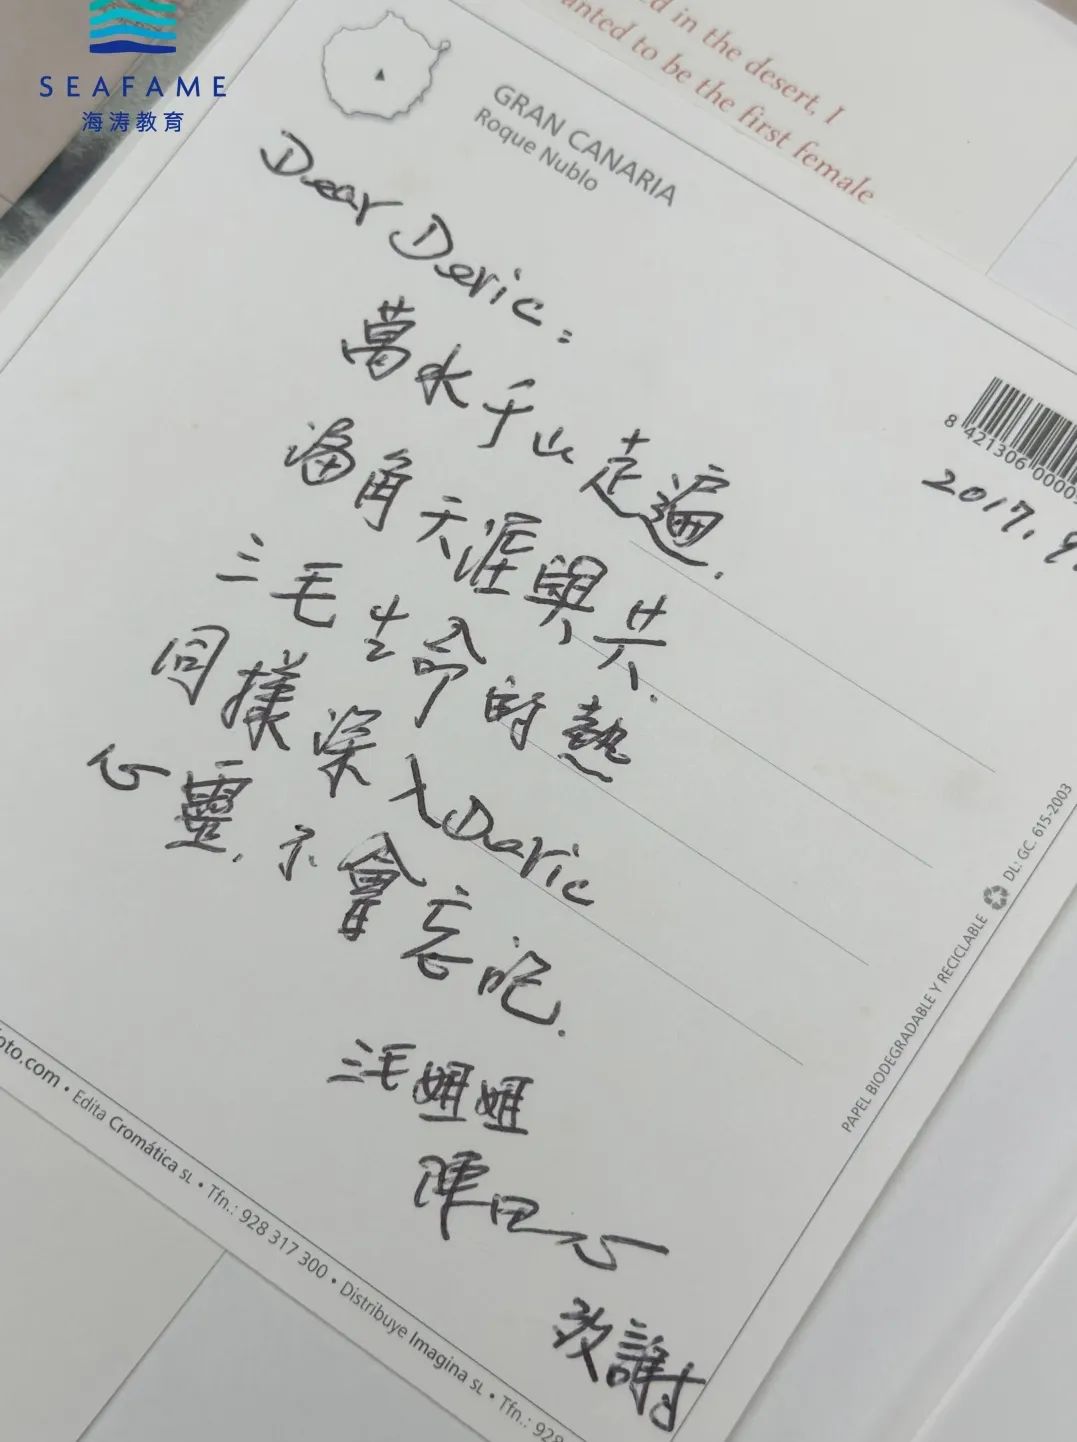 SEAFAME
海涛教育
d in the desert, I
anted to be the first female
GRAN CANARIA
Roque Nublo
Dear Deric:
萬水千山走遍.
海角天涯與共.
三毛生命的熱
同樣深入Deric
心靈.不會忘記.
三毛姐姐
陳田心
致謝
8 421306 0000
2017.9.
PAPEL BIODEGRADABLE Y RECICLABLE DL: GC. 615-2003
oto.com • Edita Cromática SL • Tfn.: 928 317 300 • Distribuye Imagina SL • Tfn.: 928